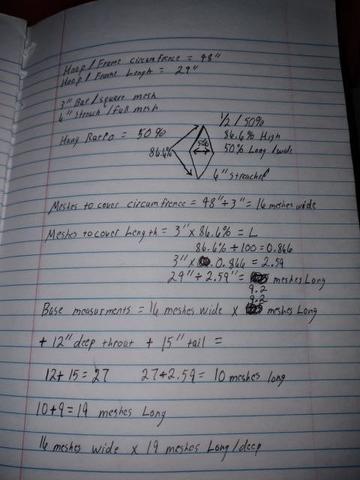 Hoop/Frame circumfrence = 48"
Hoop/Frame Length = 29"
3" Bar/square mesh
6" Streach/full mesh
1/2 / 50%
Hang Ratio = 50%
86.6% High
50%
50% Long/wide
86.6%
6" streached
Meshes to cover circumfrence = 48" ÷ 3" = 16 meshes wide
Meshes to cover Length = 3" x 86.6% = L
86.6% ÷ 100 = 0.866
3" x 0.866 = 2.59
29" ÷ 2.59" = meshes Long
9.2
9.2
Base measurments = 16 meshes wide x meshes Long
+ 12" deep throut + 15" tail =
12+15=27 27÷2.59 = 10 meshes long
10+9=19 meshes Long
16 meshes wide x 19 meshes Long/deep